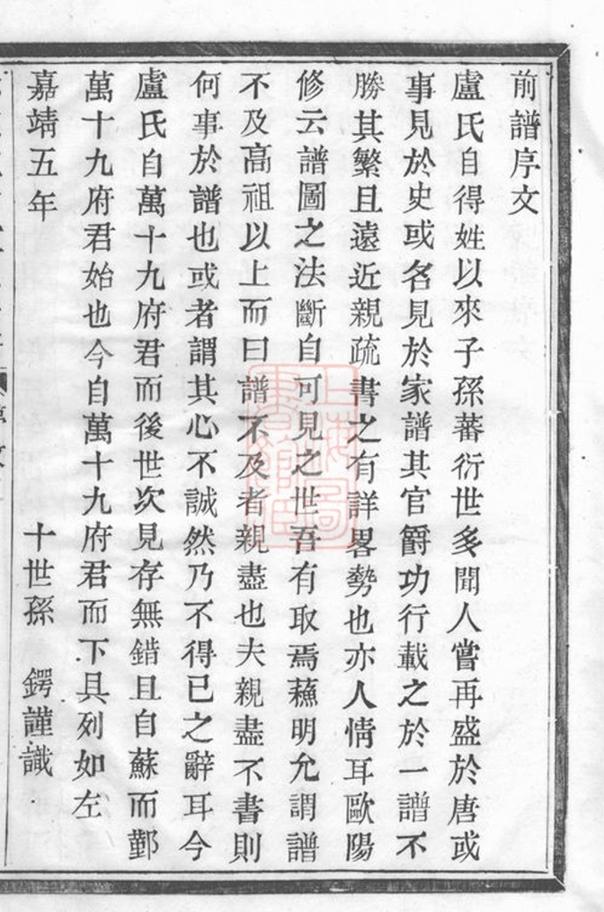 前譜序文
盧氏自得姓以來子孫蕃衍世多聞人嘗再盛於唐或
事見於史或名見於家譜其官爵功行載之於一譜不
勝其繁且遠近親疏書之有詳畧勢也亦人情耳歐陽
修云譜圖之法斷自可見之世吾有取焉蘓明允謂譜
不及高祖以上而曰譜不及者親盡也夫親盡不書則
何事於譜也或者謂其心不誠然乃不得已之辭耳今
盧氏自萬十九府君而後世次見存無錯且自蘇而鄞
萬十九府君始也今自萬十九府君而下具列如左
嘉靖五年 十世孫 鍔謹識
上海圖書館藏